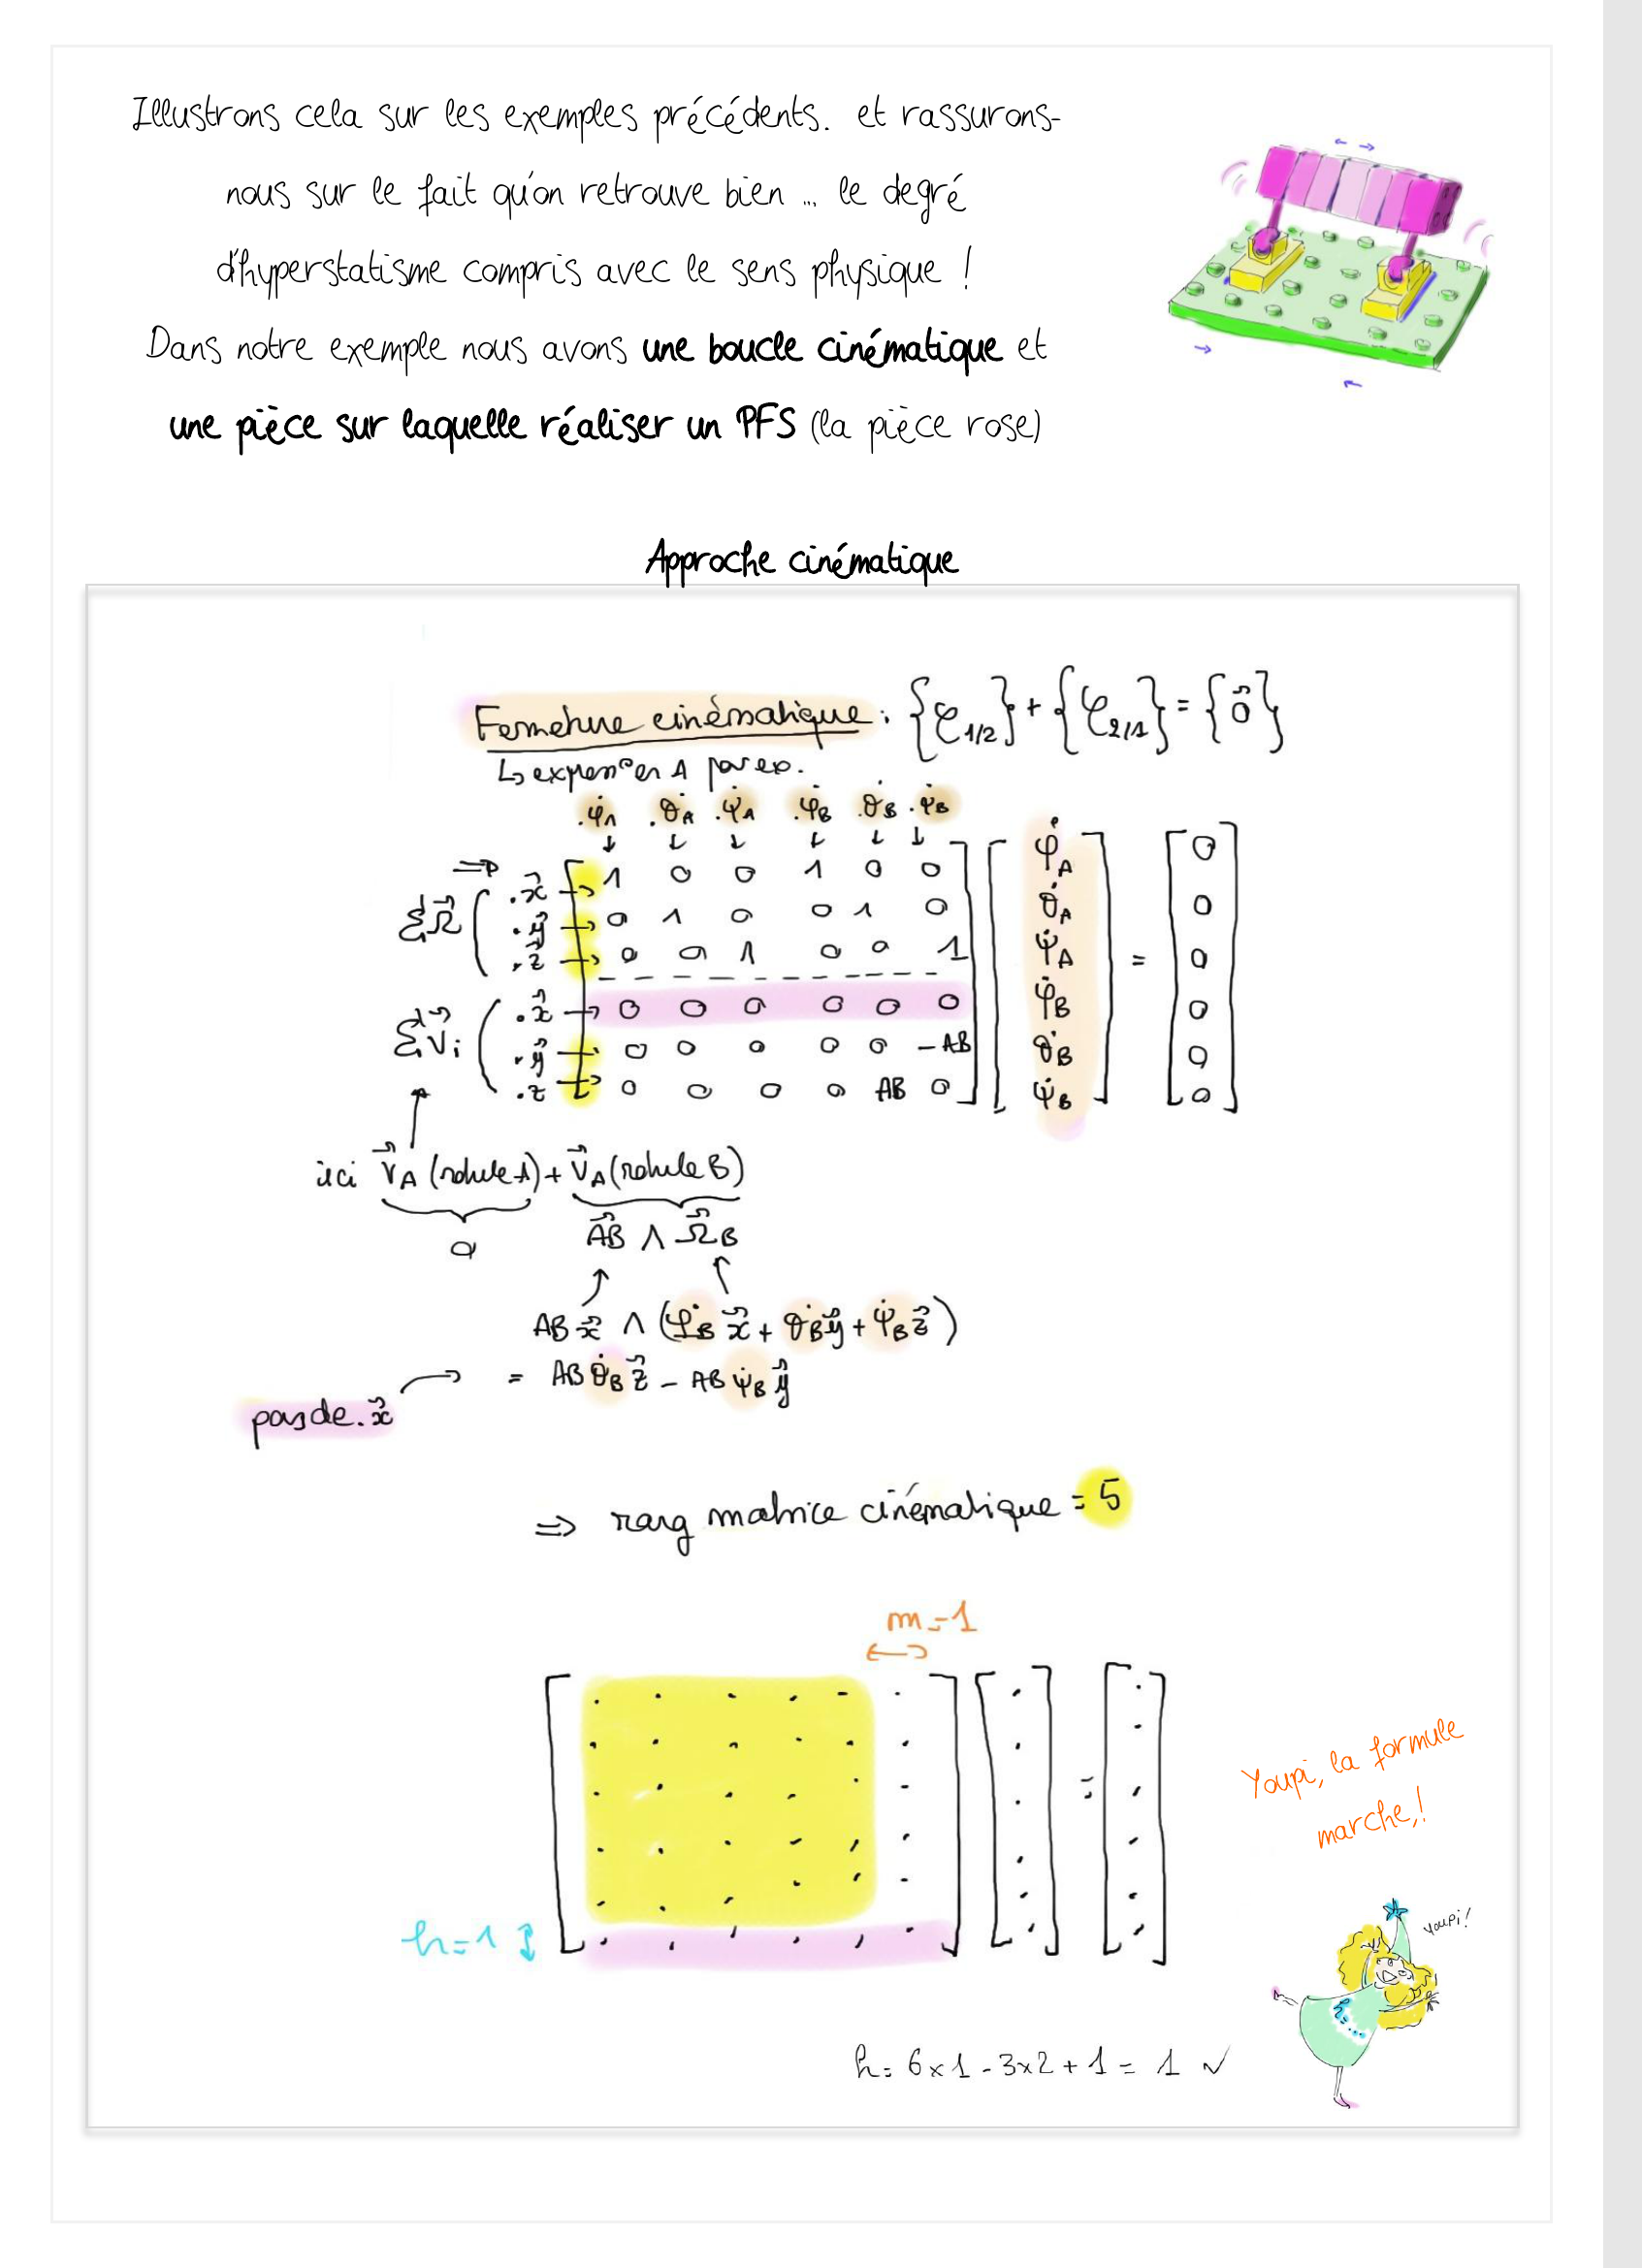 Illustrons cela sur les exemples précédents. et rassurons-
nous sur le fait qu'on retrouve bien ... le degré
d'hyperstatisme compris avec le sens physique !
Dans notre exemple nous avons une boucle cinématique et
une pièce sur laquelle réaliser un PFS (la pièce rose)
Approche cinématique
Fermeture cinématique : {𝒱1/2} + {𝒱2/1} = {0⃗}
↳ en A par ex.
.φ̇A .θ̇A .ψ̇A .φ̇B .θ̇B .ψ̇B
↓ ↓ ↓ ↓ ↓ ↓
⇒ ΣΩ⃗ ( .x⃗ → [ 1 0 0 1 0 0 ] [ φ̇A ] [ 0 ]
.y⃗ → 0 1 0 0 1 0 θ̇A 0
.z⃗ → 0 0 1 0 0 1 ψ̇A = 0
ΣV⃗i ( .x⃗ → 0 0 0 0 0 0 φ̇B 0
.y⃗ → 0 0 0 0 0 -AB θ̇B 0
.z → 0 0 0 0 AB 0 ψ̇B 0
ici V⃗A (rotule A) + V⃗A (rotule B)
0 AB⃗ ∧ Ω⃗B
AB x⃗ ∧ (φ̇B x⃗ + θ̇B y⃗ + ψ̇B z⃗)
= AB θ̇B z⃗ - AB ψ̇B y⃗
pas de .x⃗
⇒ rang matrice cinématique = 5
m=1
h=1
Youpi, la formule
marche,!
Youpi!
h= 6x1 - 3x2 + 1 = 1 ✓